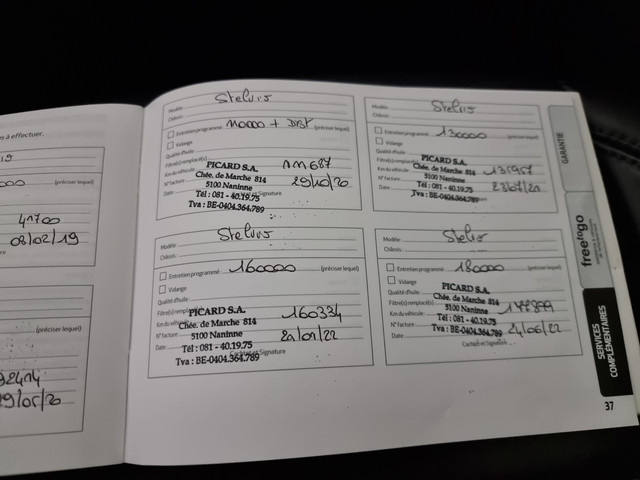 s à effectuer.
(préciser lequel)
41700
08/02/19
(préciser lequel)
Modèle Stelvio
Châssis
Entretien programmé 110000 + DIST (préciser lequel)
Vidange
Qualité d'huile
Filtre(s) remplacé(s)
Km du véhicule 111687
N° facture
Date 29/10/20
PICARD S.A.
Chée. de Marche 814
5100 Naninne
Tél : 081 - 40.19.75
Tva : BE-0404.364.789
Modèle Stelvio
Châssis
Entretien programmé 130000 (préciser lequel)
Vidange
Qualité d'huile
Filtre(s) remplacé(s)
Km du véhicule
N° facture
Date
PICARD S.A.
Chée. de Marche 814
5100 Naninne
Tél : 081 - 40.19.75
Tva : BE-0404.364.789
Modèle Stelvio
Châssis
Entretien programmé 160000 (préciser lequel)
Vidange
Qualité d'huile
Filtre(s) remplacé(s)
Km du véhicule 160334
N° facture
Date
PICARD S.A.
Chée. de Marche 814
5100 Naninne
Tél : 081 - 40.19.75
Tva : BE-0404.364.789
Cachet et Signature
Modèle Stelvio
Châssis
Entretien programmé 180000 (préciser lequel)
Vidange
Qualité d'huile
Filtre(s) remplacé(s)
Km du véhicule
N° facture
Date 24/06/22
PICARD S.A.
Chée. de Marche 814
5100 Naninne
Tél : 081 - 40.19.75
Tva : BE-0404.364.789
Cachet et Signature
GARANTIE
freetogo
SERVICES
COMPLÉMENTAIRES
37